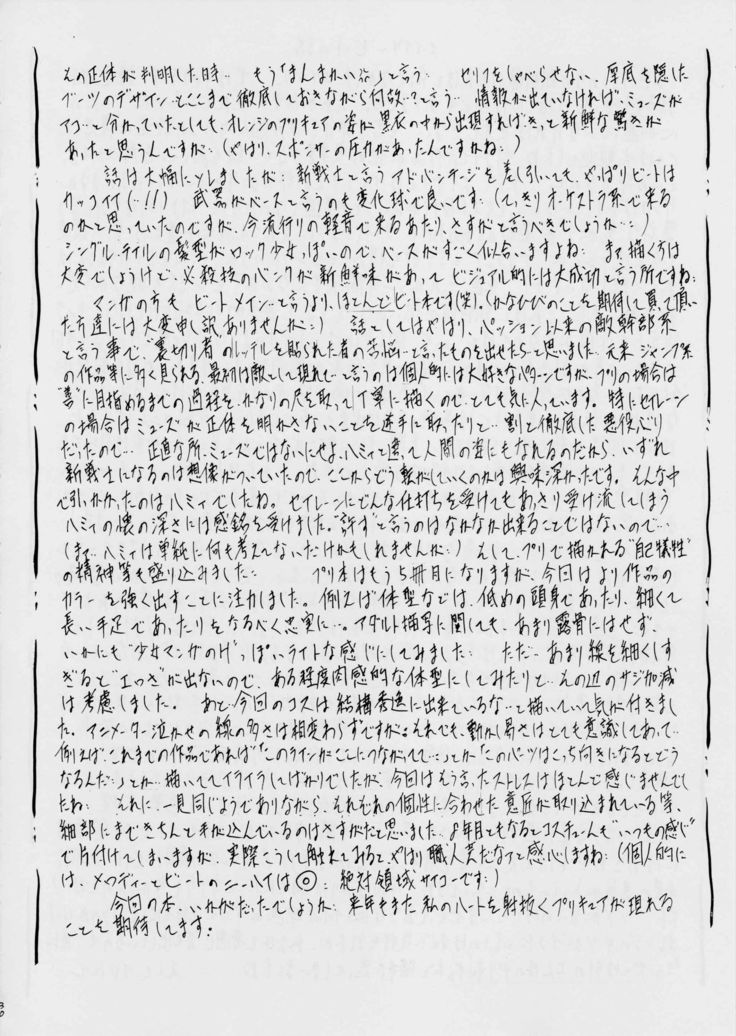 その正体が判明した時… もう「まんまかい☆」と言う… セリフをしゃべらせない、厚底を隠した
ブーツのデザイン…とここまで徹底しておきながら何故…?と言う… 情報が出ていなければ、ミューズが
アコ…と分かっていたとしても、オレンジのプリキュアの姿が黒衣の中から出現すれば、きっと新鮮な驚きが
あったと思うんですが…(やはり、スポンサーの圧力があったんですかね…)
話は大幅にソレましたが… 新戦士と言うアドバンテージを差し引いても、やっぱりビートは
カッコイイ(…!!) 武器がベースと言うのも変化球で良いです…(てっきりオーケストラ系で来る
のかと思っていたのですが、今流行りの軽音で来るあたり、さすがと言うべきでしょうか…)
シングルテイルの髪型がロック少女っぽいので、ベースがすごく似合いますよね… まぁ、描く方は
大変でしょうけど、必殺技のバンクが新鮮味があって ビジュアル的には大成功と言う所ですね…
マンガの方も ビートメイン…と言うより、ほとんどビート本です(笑)。(かなひびのことを期待して買って頂い
た方達には大変申し訳ありませんが…) 話としてはやはり、パッション以来の敵幹部系
と言う事で、"裏切り者"のレッテルを貼られた者の苦悩…と言ったものを出せたら…と思いました… 元来 ジャンプ系
の作品等に多く見られる、最初は敵として現れて…と言うのは個人的には大好きなパターンですが、プリの場合は
"善"に目指めるまでの過程を、かなりの尺を取って丁寧に描くので、とても気に入っています。特にセイレーン
の場合はミューズが正体を明かさないことを逆手に取ったりと… 割と徹底した悪役ぶり
だったので… 正直な所、ミューズではないにせよ、ハミィと違って人間の姿にもなれるのだから、いずれ
新戦士になるのは想像がついていたので、ここからどう繋がしていくのかは興味深かったです。そんな中
で引っかかったのはハミィでしたね。セイレーンにどんな仕打ちを受けてもあっさり受け流してしまう
ハミィの懐の深さには感銘を受けました。"許す"と言うのはなかなか出来ることではないので…
(まぁ… ハミィは単純に何も考えてないだけかもしれませんが…) そして、プリで描かれる"自己犠牲"
の精神等も盛り込みました… プリ本はもう5冊目になりますが、今回はより作品の
カラーを強く出すことに注力しました。例えば体型などでは、低めの頭身であったり、細くて
長い手足であったりをなるべく忠実に…。アダルト描写に関しても、あまり露骨にはせず、
いかにも"少女マンガのH"っぽいライトな感じにしてみました… ただ…あまり線を細くしす
ぎると"エロさ"が出ないので、ある程度肉感的な体型にしてみたりと…その辺のサジ加減
は考慮しました。 あと…今回のコスは結構秀逸に出来ているな…と描いていて気が付きまし
た。アニメーター泣かせの線の多さは相変わらずですが。それでも、動かし易さはとても意識してあって…
例えば、これまでの作品であれば「このラインがここにつながってて…」とか「このパーツはこっち向きになるとどう
なるんだ…」とか…描いててイライラしてばかりでしたが、今回はもう言ったストレスはほとんど感じませんでし
たね… それに、一見同じようでありながら、それぞれの個性に合わせた意匠が取り込まれている等、
細部にまできちんと手が込んでいるのはさすがだと思いました… 8年目ともなるとコスチュームも"いつもの感じ"
で片付けてしまいますが、実際こうして触れてみると、やはり職人芸だなァ…と感心しますね…(個人的に
は、メロディーとビートのニーハイは◎… 絶対領域サイコーです…)
今回の本、いかがだったでしょうか… 来年もまた私のハートを射抜くプリキュアが現れる
ことを期待してます。